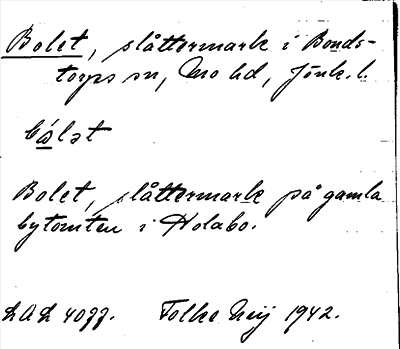 Bolet, slåttermark i Bonds-
torps sn, Mo hd, Jönk. l.
bɷ́lət
Bolet, slåttermark på gamla
bytomten i Holabo.
LAL 4077. Folke Neij 1942.